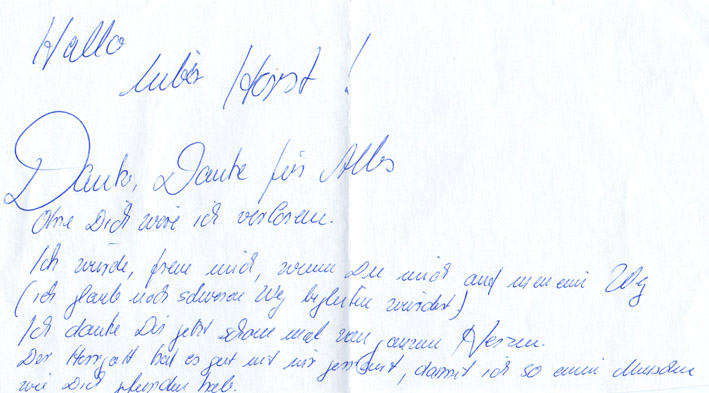 Hallo
lieber Horst!
Danke, Danke für Alles
Ohne Dich wäre ich verloren.
Ich würde, freue mich, wenn Du mich auf meinem Weg
(ich glaub noch schweren Weg begleiten würdest)
Ich danke Dir jetzt schon mal vom ganzen Herzen.
Der Herrgott hat es gut mit mir gemeint, damit ich so einen Menschen
wie Dich gefunden hab.